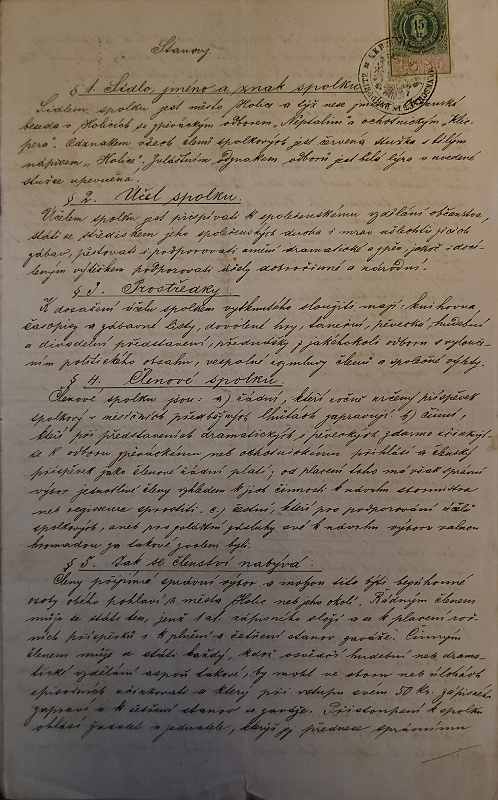 Stanovy
15
§ 1. Sídlo, jméno a znak spolku
Sídlem spolku jest město Holice a týž nese jméno
beseda v Holicích se zpěváckým odborem „Neptalim“ a ochotnickým „Klic-
pera“. Odznakem všech členů spolkových jest červená stužka s bílým
nápisem „Holice“. Zvláštním odznakem odborů jest bílá lyra v uvedené
stužce upevněná.
§ 2. Účel spolku.
Účelem spolku jest přispívati k společenskému vzdělání občanstva,
státi se střediskem jeho společenských ducha i mrav ušlechťujících
zábav, pěstovati i podporovati umění dramatické a zpěv, jakož i docí-
leným výtěžkem podporovati účely dobročinné a národní.
§ 3. Prostředky.
K dosažení účelu spolkem vytknutého sloužiti mají: knihovna,
časopisy a zábavné listy, dovolené hry, taneční, pěvecko-hudební
a divadelní představení, přednášky z jakéhokoli odboru s vylouče-
ním politického obsahu, vespolné rozmluvy členů a společné výlety.
§ 4. Členové spolku
Členové spolku jsou: a) řádní, kteří ročně určený příspěvek
spolkový v měsíčních předběžných lhůtách zapravují b.) činní,
kteří při představeních dramatických i pěveckých zdarma účinkují,
se k odboru zpěváckému neb ochotnickému přihlásí a členský
příspěvek jako členové řádní platí; od placení toho má však správní
výbor jednotlivé členy vzhledem k jich činnosti k návrhu sbormistra
neb regisseura sprostiti. c.) čestní, kteří pro podporování účelů
spolkových, aneb pro zvláštní zásluhy své k návrhu výboru valnou
hromadou za takové zvoleni byli.
§ 5. Jak se členství nabývá.
Členy přijímá správní výbor a mohou tito býti bezúhonné
osoby obého pohlaví z města Holic neb jeho okolí. Řádným členem
může se státi ten, jenž 1 zl. zápisného složí a se k placení roč-
ních příspěvků i k plnění a šetření stanov zaváže. Činným
členem může se státi každý, kdož osvědčí hudební neb drama-
tické vzdělání aspoň takové, by mohl ve sboru neb úlohách
episodních účinkovati a který při vstupu svém 50 kr. zápisného
zapraví a k šetření stanov se zaváže. Přistoupení k spolku
ohlásí žadatel u jednatele, kterýž jej přednese správnímu